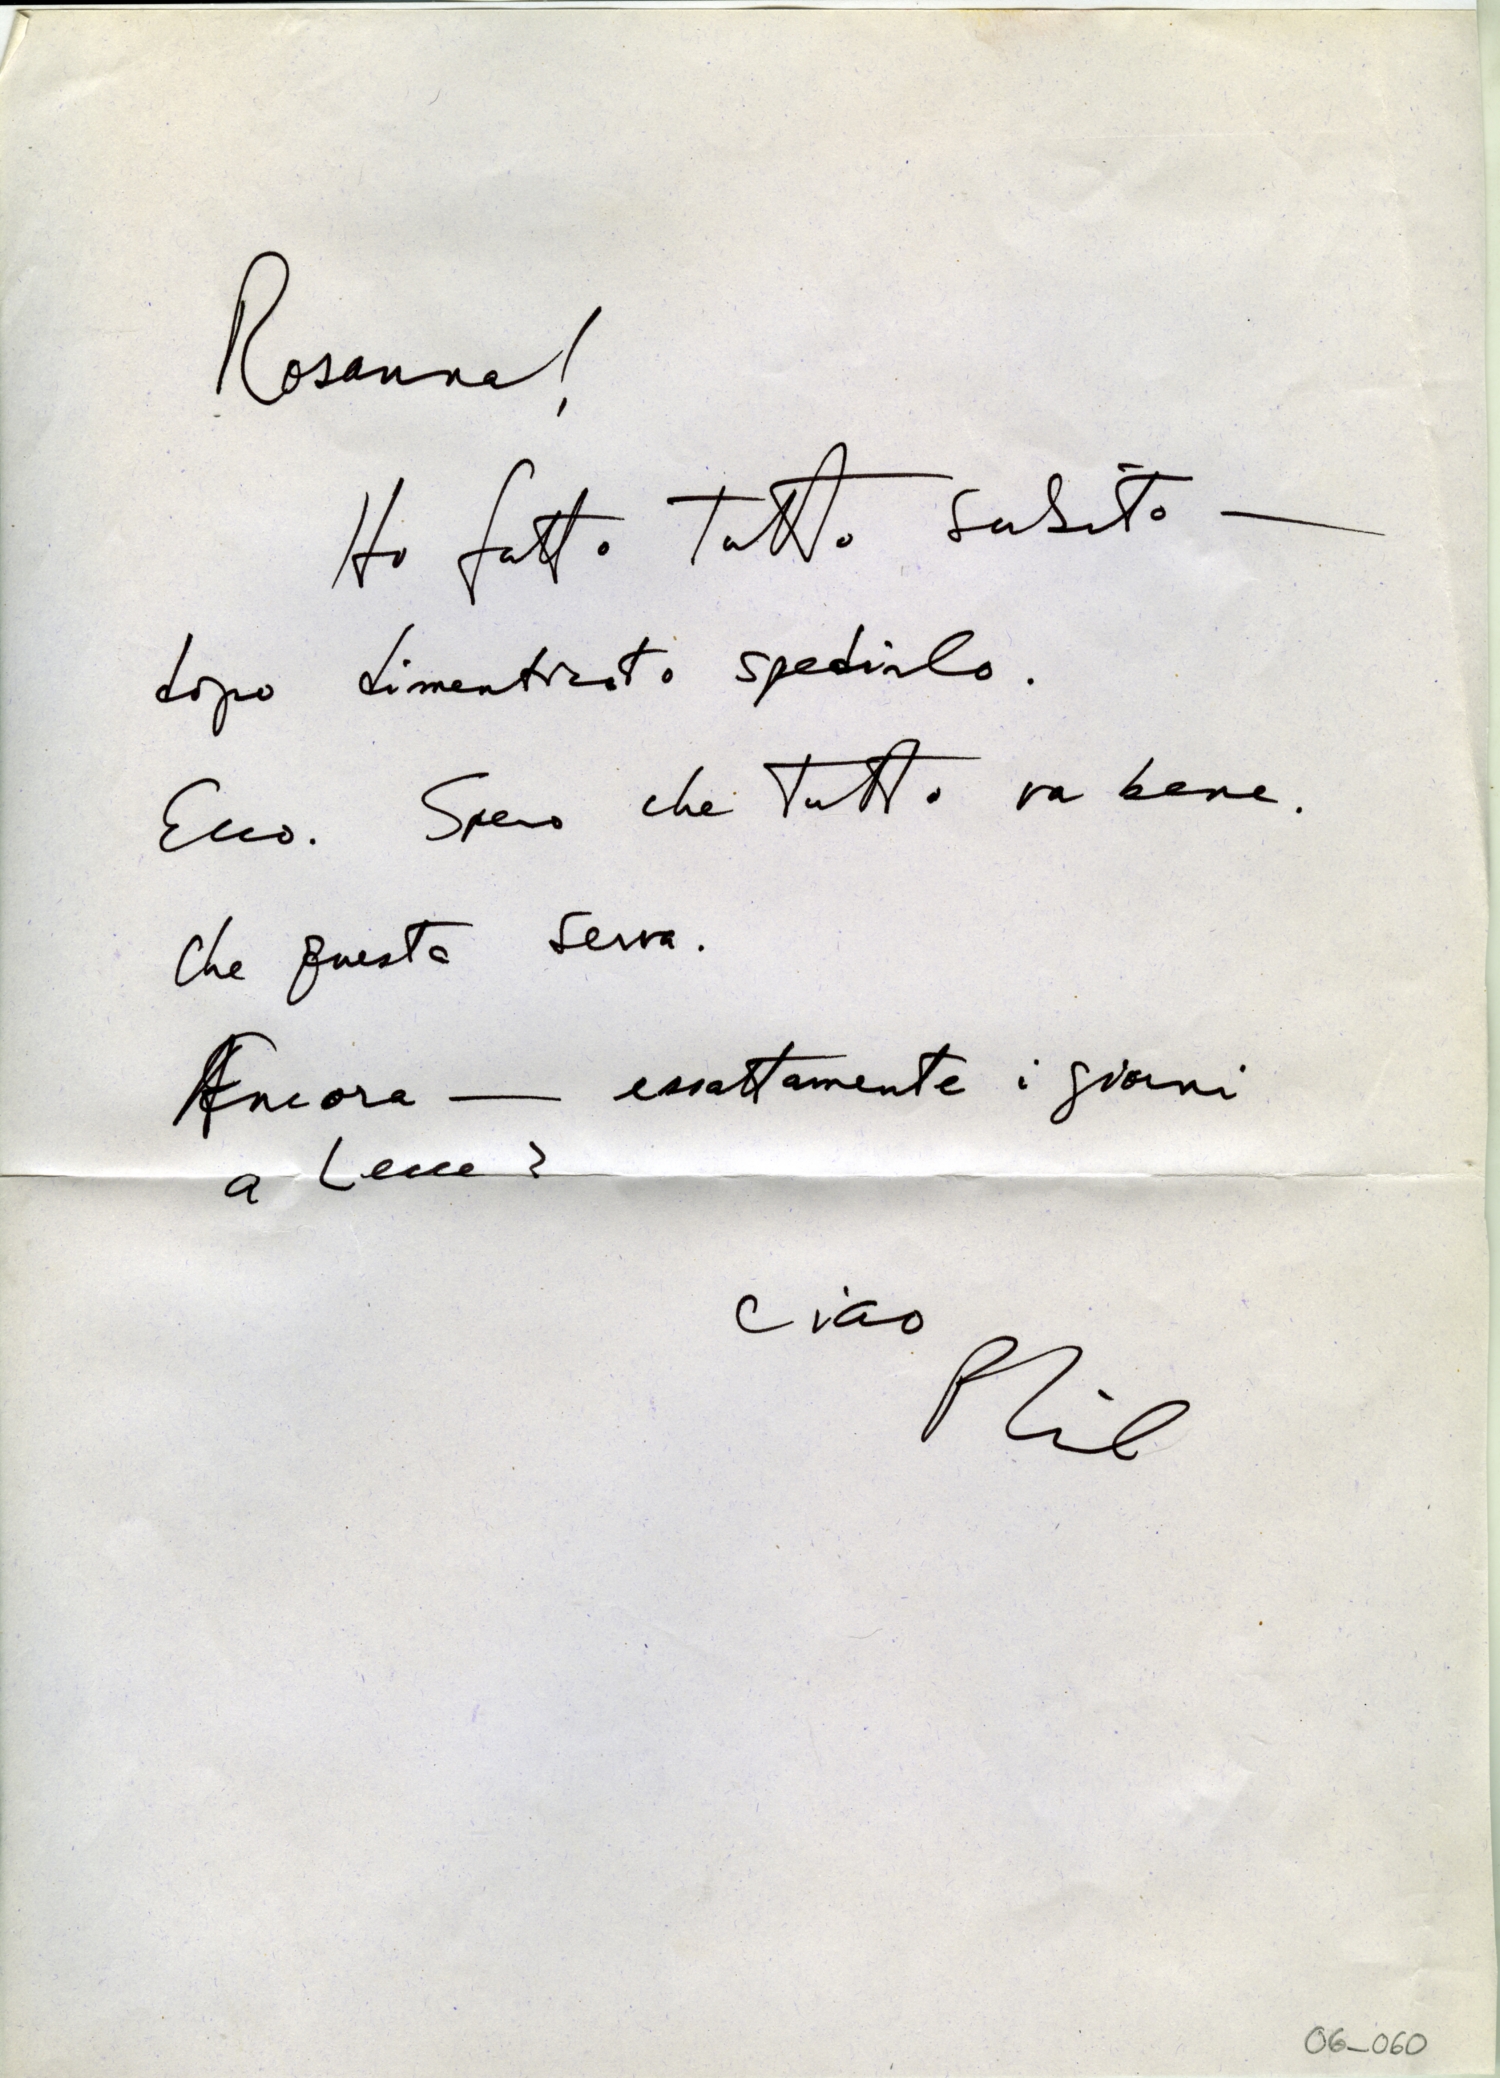 Rosanna!
Ho fatto tutto subito —
dopo dimenticato spedirlo.
Ecco. Spero che tutto va bene.
Che questa serva.
Ancora — essattamente i giorni
a Lecce?
Ciao
Phil
06_060